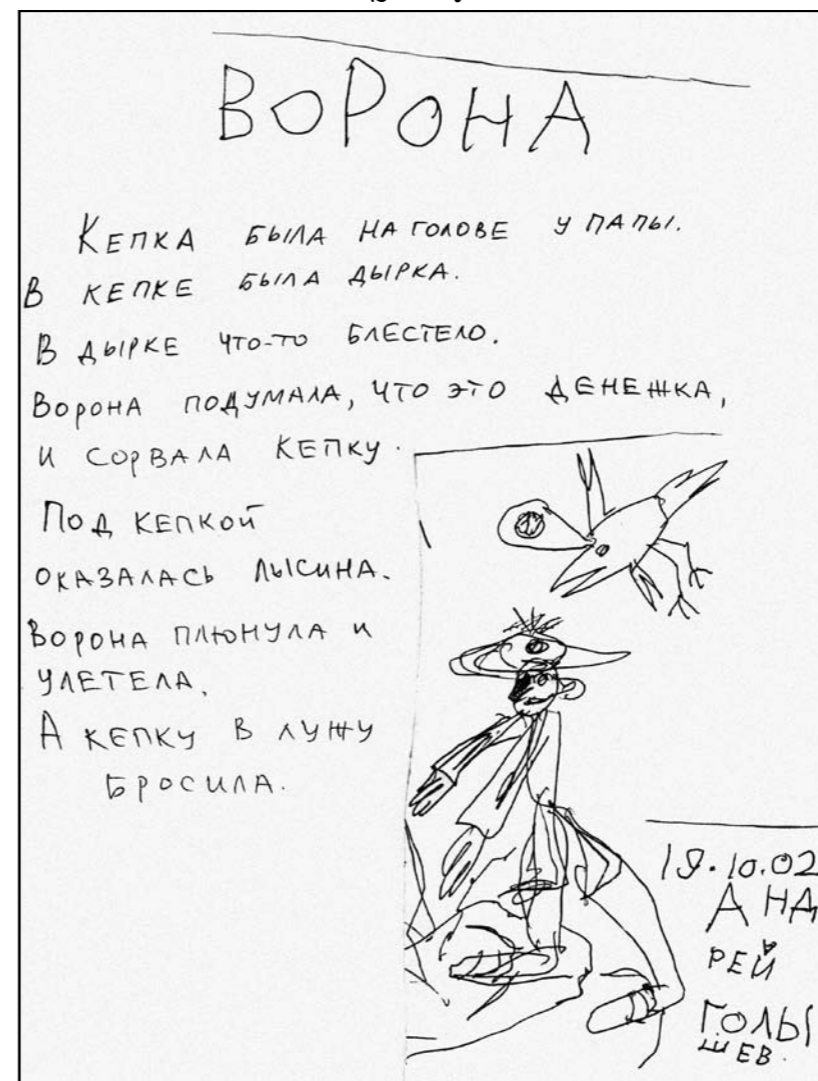 ВОРОНА
КЕПКА БЫЛА НА ГОЛОВЕ У ПАПЫ.
В КЕПКЕ БЫЛА ДЫРКА.
В ДЫРКЕ ЧТО-ТО БЛЕСТЕЛО.
ВОРОНА ПОДУМАЛА, ЧТО ЭТО ДЕНЕЖКА,
И СОРВАЛА КЕПКУ.
ПОД КЕПКОЙ
ОКАЗАЛАСЬ ЛЫСИНА.
ВОРОНА ПЛЮНУЛА И
УЛЕТЕЛА.
А КЕПКУ В ЛУЖУ
БРОСИЛА.
19.10.02
АНД
РЕЙ
ГОЛЫ
ШЕВ.